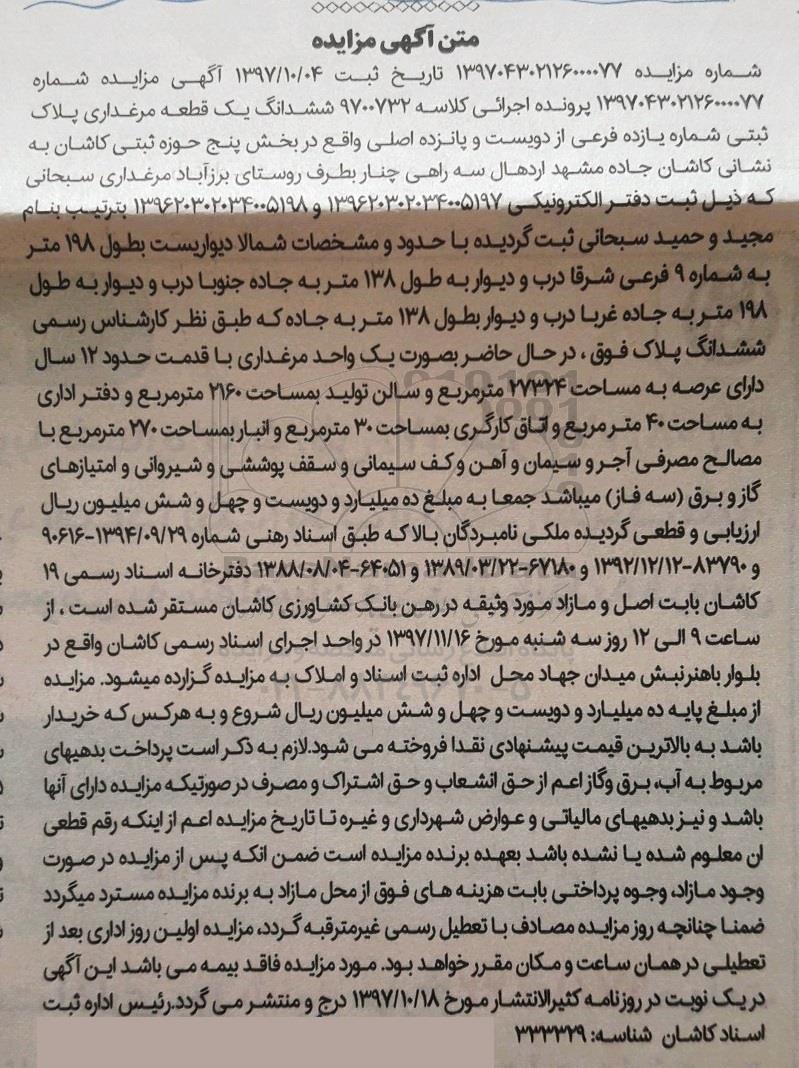 متن آگهی مزایده
شماره مزایده ۱۳۹۷۰۴۳۰۲۱۲۶۰۰۰۰۷۷ تاریخ ثبت ۱۳۹۷/۱۰/۰۴ آگهی مزایده شماره
۱۳۹۷۰۴۳۰۲۱۲۶۰۰۰۰۷۷ پرونده اجرائی کلاسه ۹۷۰۰۷۳۲ ششدانگ یک قطعه مرغداری پلاک
ثبتی شماره یازده فرعی از دویست و پانزده اصلی واقع در بخش پنج حوزه ثبتی کاشان به
نشانی کاشان جاده مشهد اردهال سه راهی چنار بطرف روستای برزآباد مرغداری سبحانی
که ذیل ثبت دفتر الکترونیکی ۱۳۹۶۲۰۳۰۲۰۳۴۰۰۵۱۹۷ و ۱۳۹۶۲۰۳۰۲۰۳۴۰۰۵۱۹۸ بترتیب بنام
مجید و حمید سبحانی ثبت گردیده با حدود و مشخصات شمالا دیواریست بطول ۱۹۸ متر
به شماره ۹ فرعی شرقا درب و دیوار به طول ۱۳۸ متر به جاده جنوبا درب و دیوار به طول
۱۹۸ متر به جاده غربا درب و دیوار بطول ۱۳۸ متر به جاده که طبق نظر کارشناس رسمی
ششدانگ پلاک فوق ، در حال حاضر بصورت یک واحد مرغداری با قدمت حدود ۱۲ سال
دارای عرصه به مساحت ۲۷۳۲۴ مترمربع و سالن تولید بمساحت ۲۱۶۰ مترمربع و دفتر اداری
به مساحت ۴۰ متر مربع و اتاق کارگری بمساحت ۳۰ مترمربع و انبار بمساحت ۲۷۰ مترمربع با
مصالح مصرفی آجر و سیمان و آهن و کف سیمانی و سقف پوششی و شیروانی و امتیازهای
گاز و برق (سه فاز) میباشد جمعا به مبلغ ده میلیارد و دویست و چهل و شش میلیون ریال
ارزیابی و قطعی گردیده ملکی نامبردگان بالا که طبق اسناد رهنی شماره ۱۳۹۴/۰۹/۲۹-۹۰۶۱۶
و ۸۳۷۹۰-۱۳۹۲/۱۲/۱۲ و ۶۷۱۸۰-۱۳۸۹/۰۳/۲۲ و ۶۴۰۵۱-۱۳۸۸/۰۸/۰۴ دفترخانه اسناد رسمی ۱۹
کاشان بابت اصل و مازاد مورد وثیقه در رهن بانک کشاورزی کاشان مستقر شده است ، از
ساعت ۹ الی ۱۲ روز سه شنبه مورخ ۱۳۹۷/۱۱/۱۶ در واحد اجرای اسناد رسمی کاشان واقع در
بلوار باهنرنبش میدان جهاد محل اداره ثبت اسناد و املاک به مزایده گزارده میشود. مزایده
از مبلغ پایه ده میلیارد و دویست و چهل و شش میلیون ریال شروع و به هرکس که خریدار
باشد به بالاترین قیمت پیشنهادی نقدا فروخته می شود.لازم به ذکر است پرداخت بدهیهای
مربوط به آب، برق وگاز اعم از حق انشعاب و حق اشتراک و مصرف در صورتیکه مزایده دارای آنها
باشد و نیز بدهیهای مالیاتی و عوارض شهرداری و غیره تا تاریخ مزایده اعم از اینکه رقم قطعی
ان معلوم شده یا نشده باشد بعهده برنده مزایده است ضمن انکه پس از مزایده در صورت
وجود مازاد، وجوه پرداختی بابت هزینه های فوق از محل مازاد به برنده مزایده مسترد میگردد
ضمنا چنانچه روز مزایده مصادف با تعطیل رسمی غیرمترقبه گردد، مزایده اولین روز اداری بعد از
تعطیلی در همان ساعت و مکان مقرر خواهد بود. مورد مزایده فاقد بیمه می باشد این آگهی
در یک نوبت در روزنامه کثیرالانتشار مورخ ۱۳۹۷/۱۰/۱۸ درج و منتشر می گردد.رئیس اداره ثبت
اسناد کاشان شناسه: ۳۳۳۳۲۹